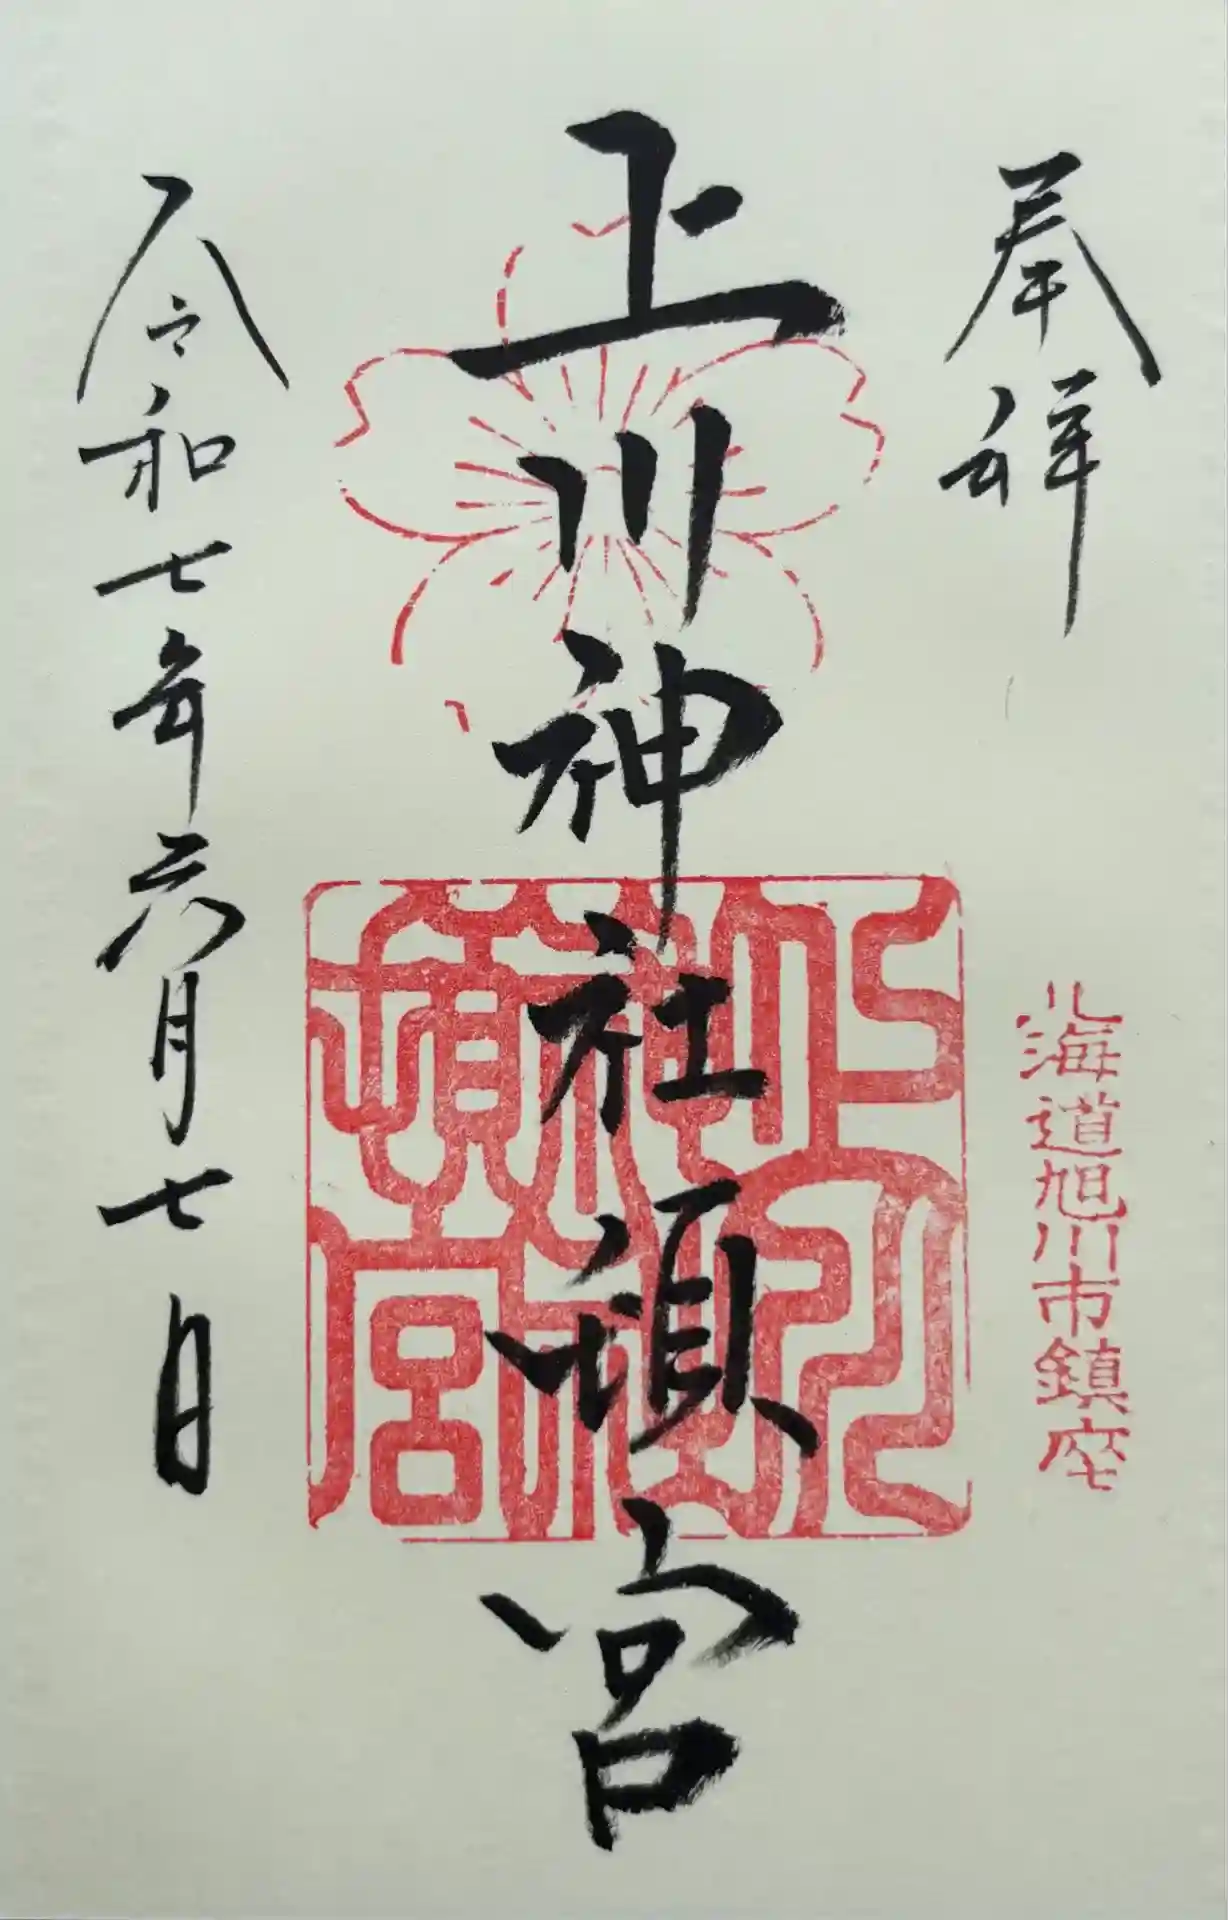 奉拝
北海道旭川市鎮座
上川神社頓宮
上川神社頓宮
令和七年六月七日